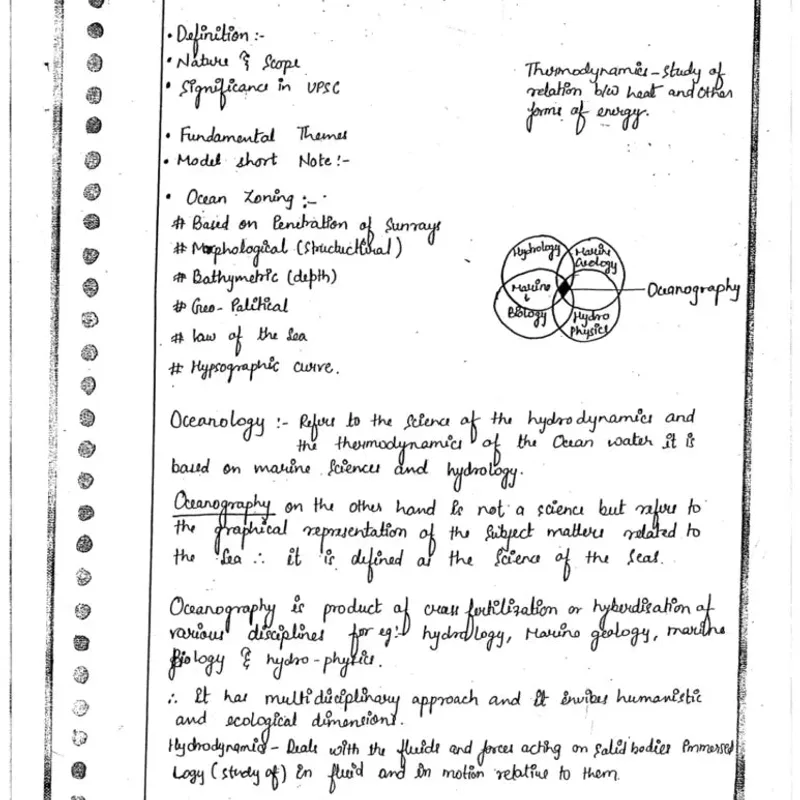 • Definition :-
• Nature & Scope
• Significance in UPSC
Thermodynamics - Study of
relation b/w heat and other
forms of energy.
• Fundamental Themes
• Model short Note :-
• Ocean Zoning :-
# Based on Penetration of Sunrays
# Morphological (structuctural)
# Bathymetric (depth)
# Geo- Palitical
# law of the Sea
# Hypsographic curve.
Hydrology
Marine
Geology
Marine
&
Biology
Hydro
Physics
Oceanography
Oceanology :- Refers to the science of the hydrodynamics and
the thermodynamics of the Ocean water it is
based on marine sciences and hydrology.
Oceanography on the other hand is not a science but refers to
the graphical representation of the subject matters related to
the sea ∴ it is defined as the science of the seas.
Oceanography is product of cross fertilization or hyberdisation of
various disciplines for eg:- hydrology, Marine geology, marine
Biology & hydro-physics.
∴ It has multidisciplinary approach and it humanistic
and ecological dimensions.
Hydrodynamic - Deals with the fluids and forces acting on solid bodies immersed
Logy (study of) in fluid and in motion relative to them.